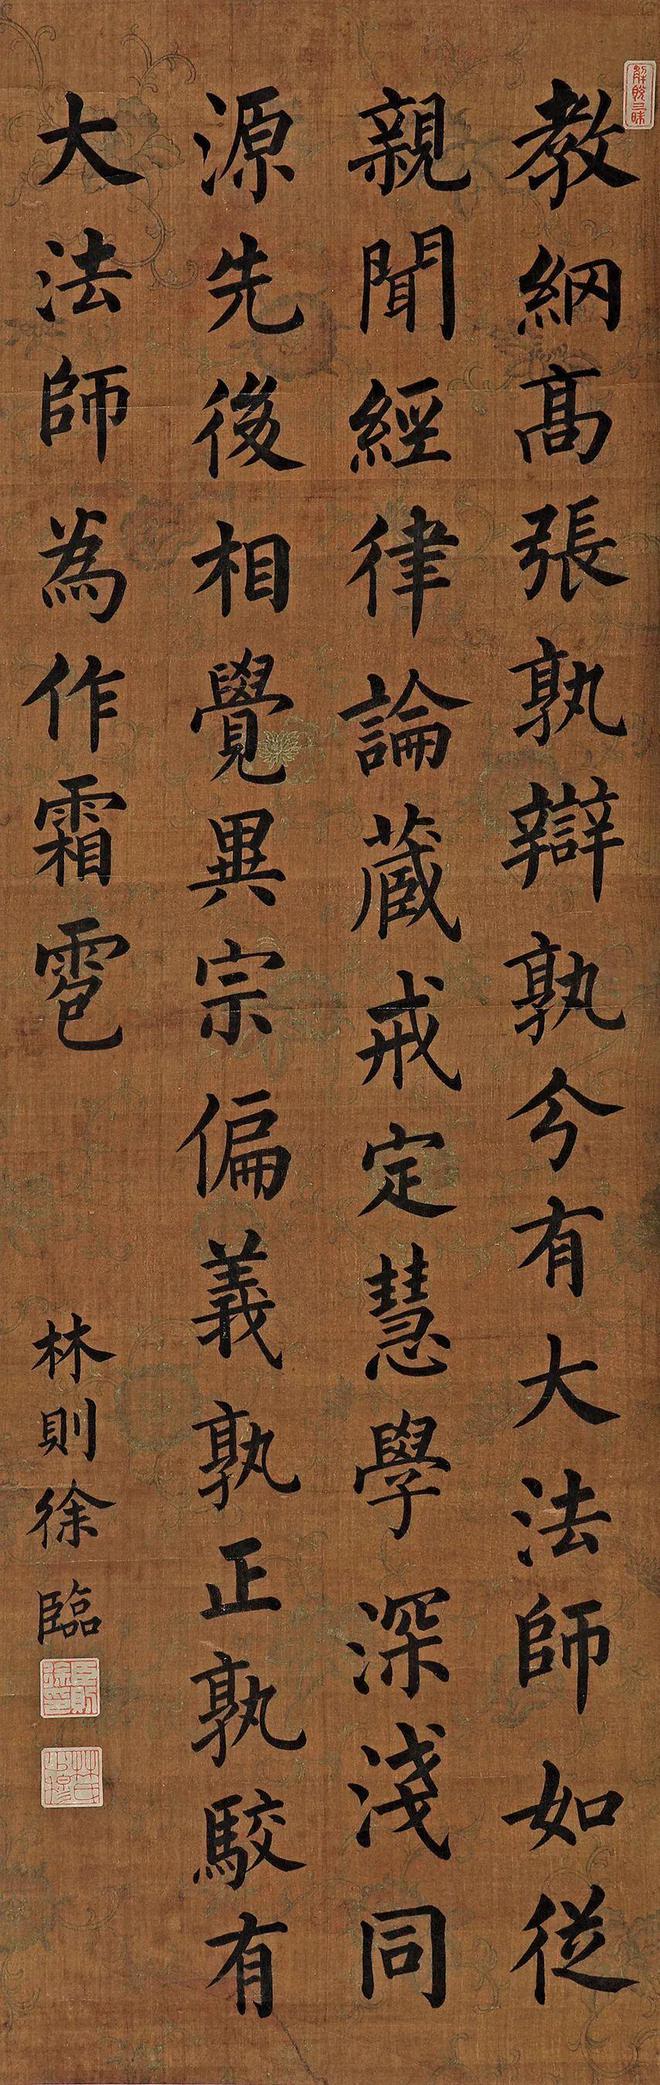 教綱高張孰辯孰兮有大法師如從
親聞經律論蔵戒定慧學深淺同
源先後相覺異宗偏義孰正孰駁有
大法師為作霜雹
林則徐臨
解脫三昧
臣則徐印